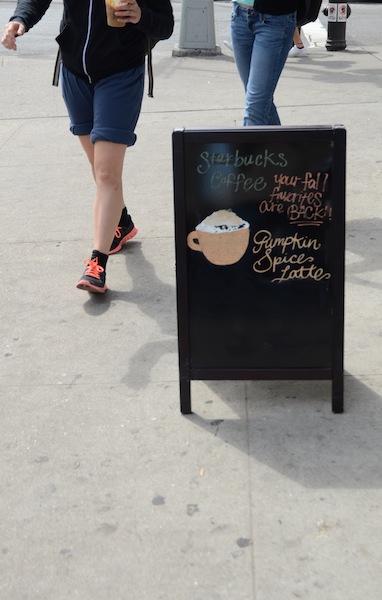 Starbucks
Coffee your fall
favorites
are BACK!
Pumpkin
Spice
Latte